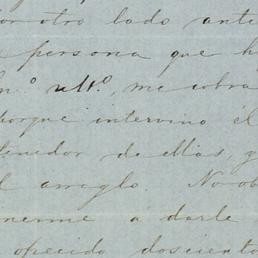 por otro lado ante
persona que h
n.º ult.º, me cobra
porque intervino él
tenedor de ellas, y
l arreglo. No ob
nerme á darle
ofrecido dosciento